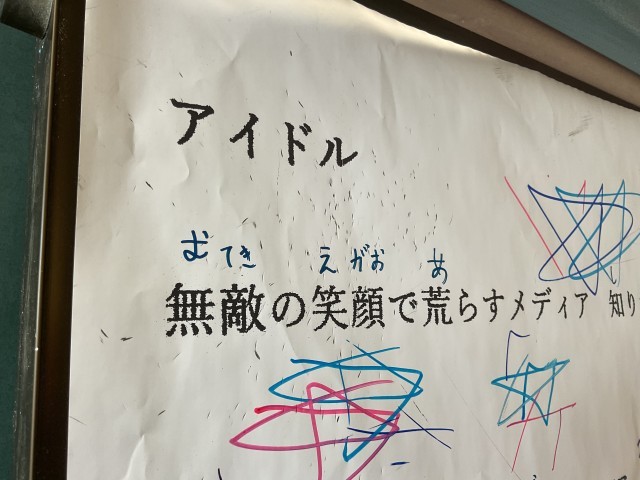 アイドル
むてき えがお あ
無敵の笑顔で荒らすメディア 知り